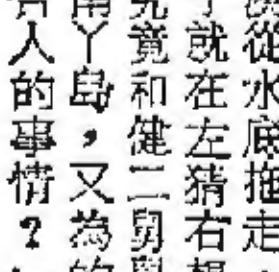 從水底拖走
了就在左猜右想
究竟和健二舅舅
南丫島，又為的
有人的事情？